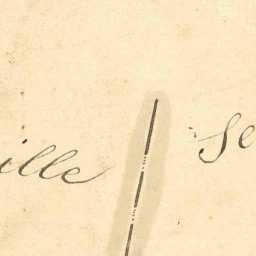 ille
Se